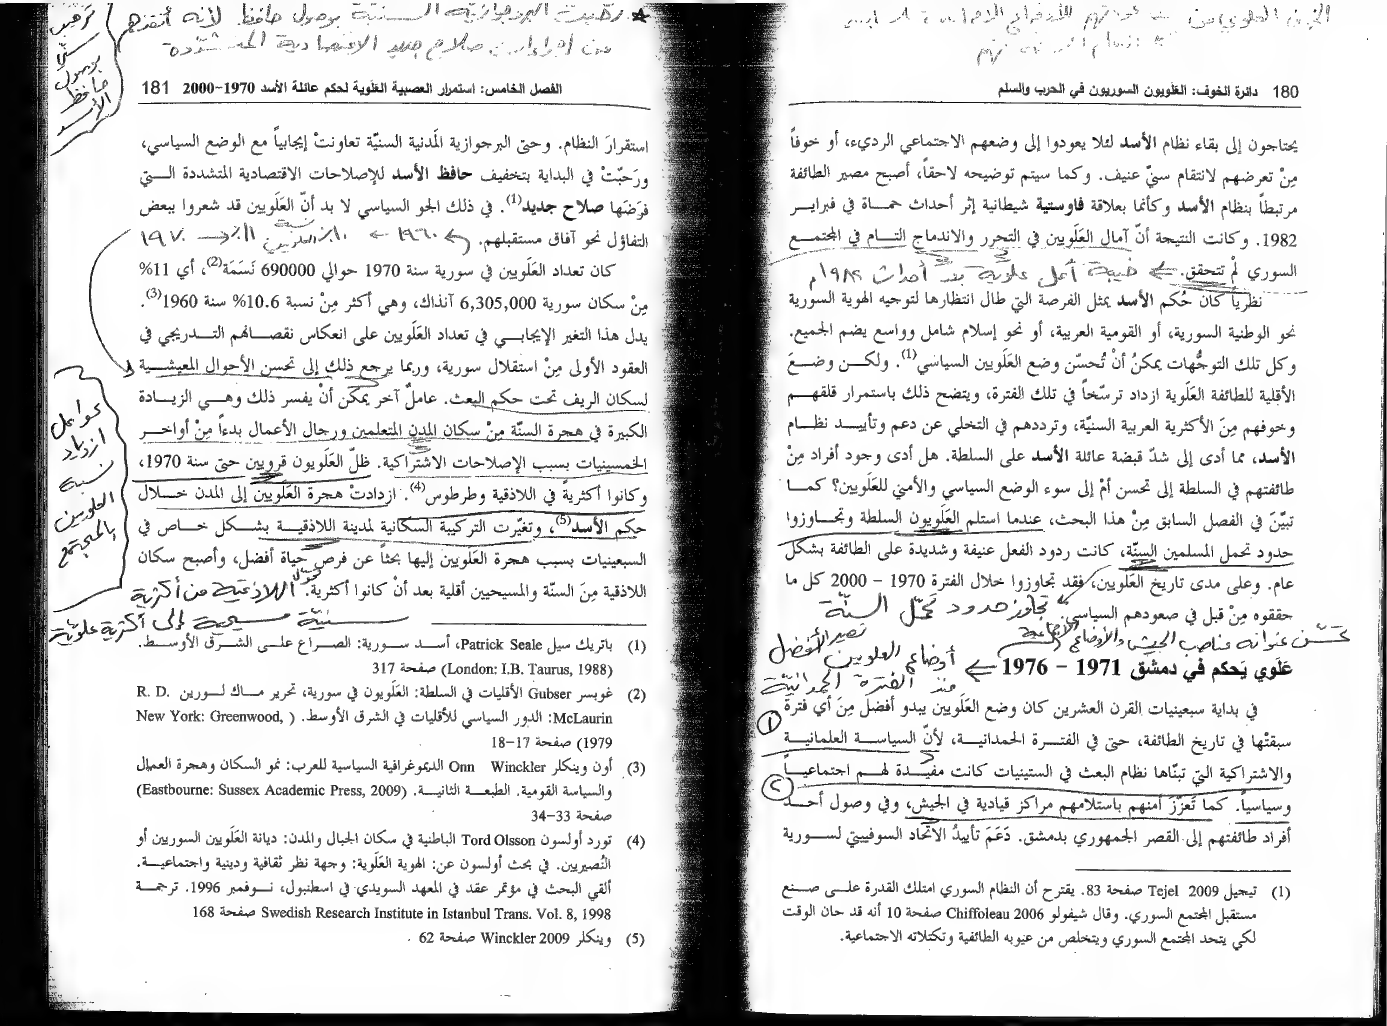 180 دائرة الخوف: العَلَويون السوريون في الحرب والسلم
يحتاجون إلى بقاء نظام الأسد لئلا يعودوا إلى وضعهم الاجتماعي الرديء، أو خوفاً
مِنْ تعرضهم لانتقام سنيّ عنيف. وكما سيتم توضيحه لاحقاً، أصبح مصير الطائفة
مرتبطاً بنظام الأسد وكأنما بعلاقة فاوستية شيطانية إثر أحداث حماة في فبراير
1982. وكانت النتيجة أنّ آمال العَلَويين في التحرر والاندماج التام في المجتمع
السوري لمْ تتحقق. ← خيبة أمل علوية بعد أحداث ١٩٨٢م
نظرياً كان حُكم الأسد يمثل الفرصة التي طال انتظارها لتوجيه الهوية السورية
نحو الوطنية السورية، أو القومية العربية، أو نحو إسلام شامل وواسع يضم الجميع.
وكل تلك التوجُّهات يمكنُ أنْ تُحسّن وضع العَلَويين السياسي(1). ولكن وضعَ
الأقلية للطائفة العَلَوية ازداد ترسّخاً في تلك الفترة، ويتضح ذلك باستمرار قلقهم
وخوفهم مِنَ الأكثرية العربية السنيّة، وترددهم في التخلي عن دعم وتأييد نظام
الأسد، مما أدى إلى شدّ قبضة عائلة الأسد على السلطة. هل أدى وجود أفراد مِنْ
طائفتهم في السلطة إلى تحسن أمْ إلى سوء الوضع السياسي والأمني للعَلَويين؟ كما
تبيّنَ في الفصل السابق مِنْ هذا البحث، عندما استلم العَلَويون السلطة وتجاوزوا
حدود تحمل المسلمين السنّة، كانت ردود الفعل عنيفة وشديدة على الطائفة بشكل
عام. وعلى مدى تاريخ العَلَويين، فقد تجاوزوا خلال الفترة 1970 – 2000 كل ما
حققوه مِنْ قبل في صعودهم السياسي. تجاوز حدود تحمّل السنّة
علوي يَحكم في دمشق 1971 – 1976 ← أوضاع العلويين تصير الأفضل
منذ الفترة الحمدانية
في بداية سبعينيات القرن العشرين كان وضع العَلَويين يبدو أفضل مِنَ أي فترة
سبقتْها في تاريخ الطائفة، حتى في الفترة الحمدانية، لأنّ السياسة العلمانية
والاشتراكية التي تبنّاها نظام البعث في الستينيات كانت مفيدة لهم اجتماعياً
وسياسياً. كما تَعزّزَ أمنهم باستلامهم مراكز قيادية في الجيش، وفي وصول أحد
أفراد طائفتهم إلى القصر الجمهوري بدمشق. دَعَمَ تأييدُ الاتحاد السوفييتي لسورية
(1) تيجيل Tejel 2009 صفحة 83. يقترح أن النظام السوري امتلك القدرة على صنع
مستقبل المجتمع السوري. وقال شيفولو Chiffoleau 2006 صفحة 10 أنه قد حان الوقت
لكي يتحد المجتمع السوري ويتخلص من عيوبه الطائفية وتكتلاته الاجتماعية.
رحّبت البرجوازية السنيّة بوصول حافظ لأنه أنقذهم
من إجراءات صلاح جديد الاقتصادية المتشددة
الفصل الخامس: استمرار العصبية العَلَوية لحكم عائلة الأسد 1970-2000 181
استقرارَ النظام. وحتى البرجوازية المَدنية السنيّة تعاونتْ إيجابياً مع الوضع السياسي،
ورَحبّتْ في البداية بتخفيف حافظ الأسد للإصلاحات الاقتصادية المتشددة التي
فرَضَها صلاح جديد(1). في ذلك الجو السياسي لا بد أنّ العَلَويين قد شعروا ببعض
التفاؤل نحو آفاق مستقبلهم.
كان تعداد العَلَويين في سورية سنة 1970 حوالي 690000 نَسَمَة(2)، أي 11%
مِنْ سكان سورية 6,305,000 آنذاك، وهي أكثر مِنْ نسبة 10.6% سنة 1960(3).
يدل هذا التغير الإيجابي في تعداد العَلَويين على انعكاس نقصانهم التدريجي في
العقود الأولى مِنْ استقلال سورية، وربما يرجع ذلك إلى تحسن الأحوال المعيشية
لسكان الريف تحت حكم البعث. عاملٌ آخر يمكن أنْ يفسر ذلك وهي الزيادة
الكبيرة في هجرة السنّة مِنْ سكان المدن المتعلمين ورجال الأعمال بدءاً مِنْ أواخر
الخمسينيات بسبب الإصلاحات الاشتراكية. ظلّ العَلَويون قرويين حتى سنة 1970،
وكانوا أكثريةً في اللاذقية وطرطوس(4). ازدادتْ هجرة العَلَويين إلى المدن خلال
حكم الأسد(5)، وتغيّرت التركيبة السكانية لمدينة اللاذقية بشكل خاص في
السبعينيات بسبب هجرة العَلَويين إليها بحثاً عن فرص حياة أفضل، وأصبح سكان
اللاذقية مِنَ السنّة والمسيحيين أقلية بعد أنْ كانوا أكثرية. اللاذقية من أكثرية
سنيّة مسيحية إلى أكثرية علويّة
عوامل
ازدياد
نسبة
العلويين
بالمجتمع
(1) باتريك سيل Patrick Seale، أسد سورية: الصراع على الشرق الأوسط.
(London: I.B. Taurus, 1988) صفحة 317
(2) غوبسر Gubser الأقليات في السلطة: العَلَويون في سورية، تحرير ماك لورين R. D.
McLaurin: الدور السياسي للأقليات في الشرق الأوسط. ( New York: Greenwood,
1979) صفحة 17–18
(3) أون وينكلر Onn Winckler الديموغرافية السياسية للعرب: نمو السكان وهجرة العمال
والسياسة القومية. الطبعة الثانية. (Eastbourne: Sussex Academic Press, 2009)
صفحة 33–34
(4) تورد أولسون Tord Olsson الباطنية في سكان الجبال والمدن: ديانة العَلَويين السوريين أو
النُصيريين. في بحث أولسون عن: الهوية العَلَوية: وجهة نظر ثقافية ودينية واجتماعية.
ألقي البحث في مؤتمر عقد في المعهد السويدي في اسطنبول، نوفمبر 1996. ترجمة
Swedish Research Institute in Istanbul Trans. Vol. 8, 1998 صفحة 168
(5) وينكلر Winckler 2009 صفحة 62 .